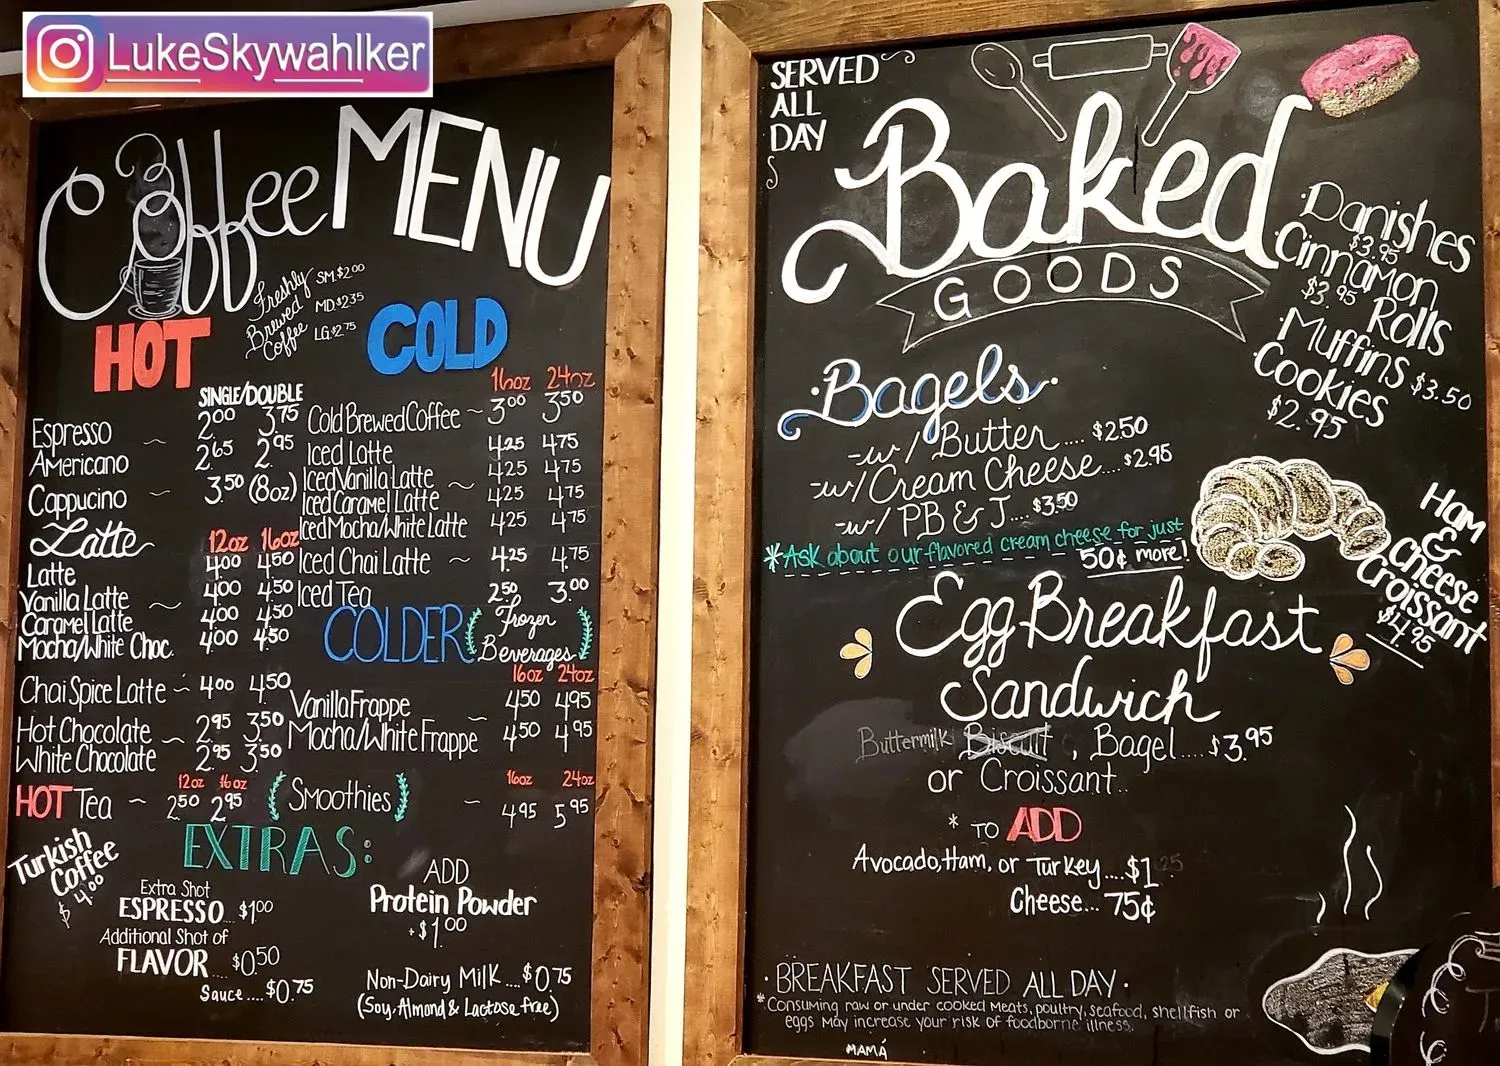 LukeSkywahlker
Coffee MENU
Freshly Brewed Coffee
SM. $2.00
MD. $2.35
LG. $2.75
HOT
SINGLE/DOUBLE
Espresso ~ 2.00 3.75
Americano 2.65 2.95
Cappucino ~ 3.50 (8oz)
Latte 12oz 16oz
Latte 4.00 4.50
Vanilla Latte ~ 4.00 4.50
Caramel Latte 4.00 4.50
Mocha/White Choc. 4.00 4.50
Chai Spice Latte ~ 4.00 4.50
Hot Chocolate ~ 2.95 3.50
White Chocolate 2.95 3.50
12oz 16oz
HOT Tea ~ 2.50 2.95
Turkish
Coffee
$4.00
COLD
16oz 24oz
Cold Brewed Coffee ~ 3.00 3.50
Iced Latte 4.25 4.75
Iced Vanilla Latte ~ 4.25 4.75
Iced Caramel Latte 4.25 4.75
Iced Mocha/White Latte 4.25 4.75
Iced Chai Latte ~ 4.25 4.75
Iced Tea 2.50 3.00
COLDER (Frozen Beverages)
16oz 24oz
Vanilla Frappe ~ 4.50 4.95
Mocha/White Frappe 4.50 4.95
16oz 24oz
(Smoothies) ~ 4.95 5.95
EXTRAS:
Extra Shot
ESPRESSO... $1.00
Additional Shot of
FLAVOR .... $0.50
Sauce .... $0.75
ADD
Protein Powder
+$1.00
Non-Dairy Milk ... $0.75
(Soy, Almond & Lactose free)
SERVED
ALL
DAY
Baked
GOODS
·Danishes
$3.95
·Cinnamon
Rolls
$3.95
·Muffins $3.50
·Cookies
$2.95
·Bagels·
-w/ Butter.... $2.50
-w/Cream Cheese... $2.95
-w/ PB & J.... $3.50
*Ask about our flavored cream cheese for just
50¢ more!
Ham
&
Cheese
Croissant
$4.95
Egg Breakfast
Sandwich
Buttermilk Biscuit , Bagel.... $3.95
or Croissant..
* TO ADD
Avocado, Ham, or Turkey....$1.25
Cheese... 75¢
· BREAKFAST SERVED ALL DAY ·
*Consuming raw or under cooked meats, poultry, seafood, shellfish or
eggs may increase your risk of foodborne illness.
MAMÁ